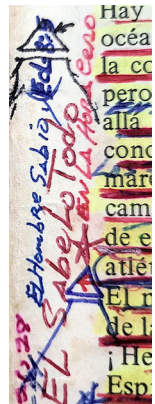 El Hombre Sabio y
EL Sabelo Todo
EN LA Hora Cero
Hay
océa
la co
pero
allá
cono
mare
cam
de e
atlét
El m
de la
¡He
Espí